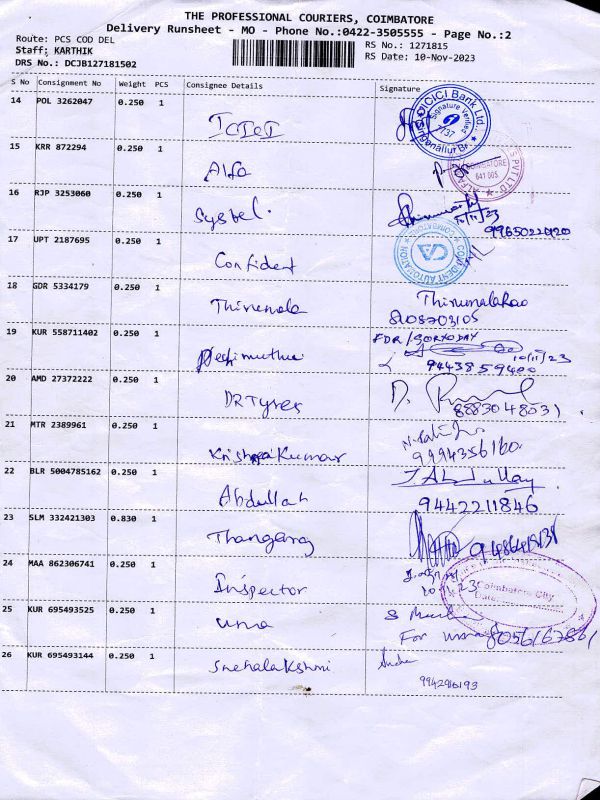 THE PROFESSIONAL COURIERS, COIMBATORE
Delivery Runsheet - MO - Phone No.:0422-3505555 - Page No.:2
Route: PCS COD DEL
RS No.: 1271815
Staff: KARTHIK
RS Date: 10-Nov-2023
DRS No.: DCJB127181502
S No Consignment No Weight PCS Consignee Details Signature
14 POL 3262047 0.250 1
ICICI
ICICI Bank Ltd.
Signature Verified
15 KRR 872294 0.250 1
Alfa
COIMBATORE
641 005
PVT LTD
16 RJP 3253060 0.250 1
Systel.
10/11/23
9965022020
17 UPT 2187695 0.250 1
Confident
CONFIDENT AUTOMATION
COIMBATORE
CA
18 GDR 5334179 0.250 1
Thirumala
Thirumala Rao
8108703105
19 KUR 558711402 0.250 1
10/11/23
9443859400
20 AMD 27372222 0.250 1
DR Tyres
8883048031
21 MTR 2389961 0.250 1
Krishna Kumar
9994356160.
22 BLR 5004785162 0.250 1
Abdullah
J Abdullah
9442211846
23 SLM 332421303 0.830 1
Thangaraj
24 MAA 862306741 0.250 1
Inspector
Coimbatore City
Date:
25 KUR 695493525 0.250 1
uma
For uma
26 KUR 695493144 0.250 1
Snehalakshmi